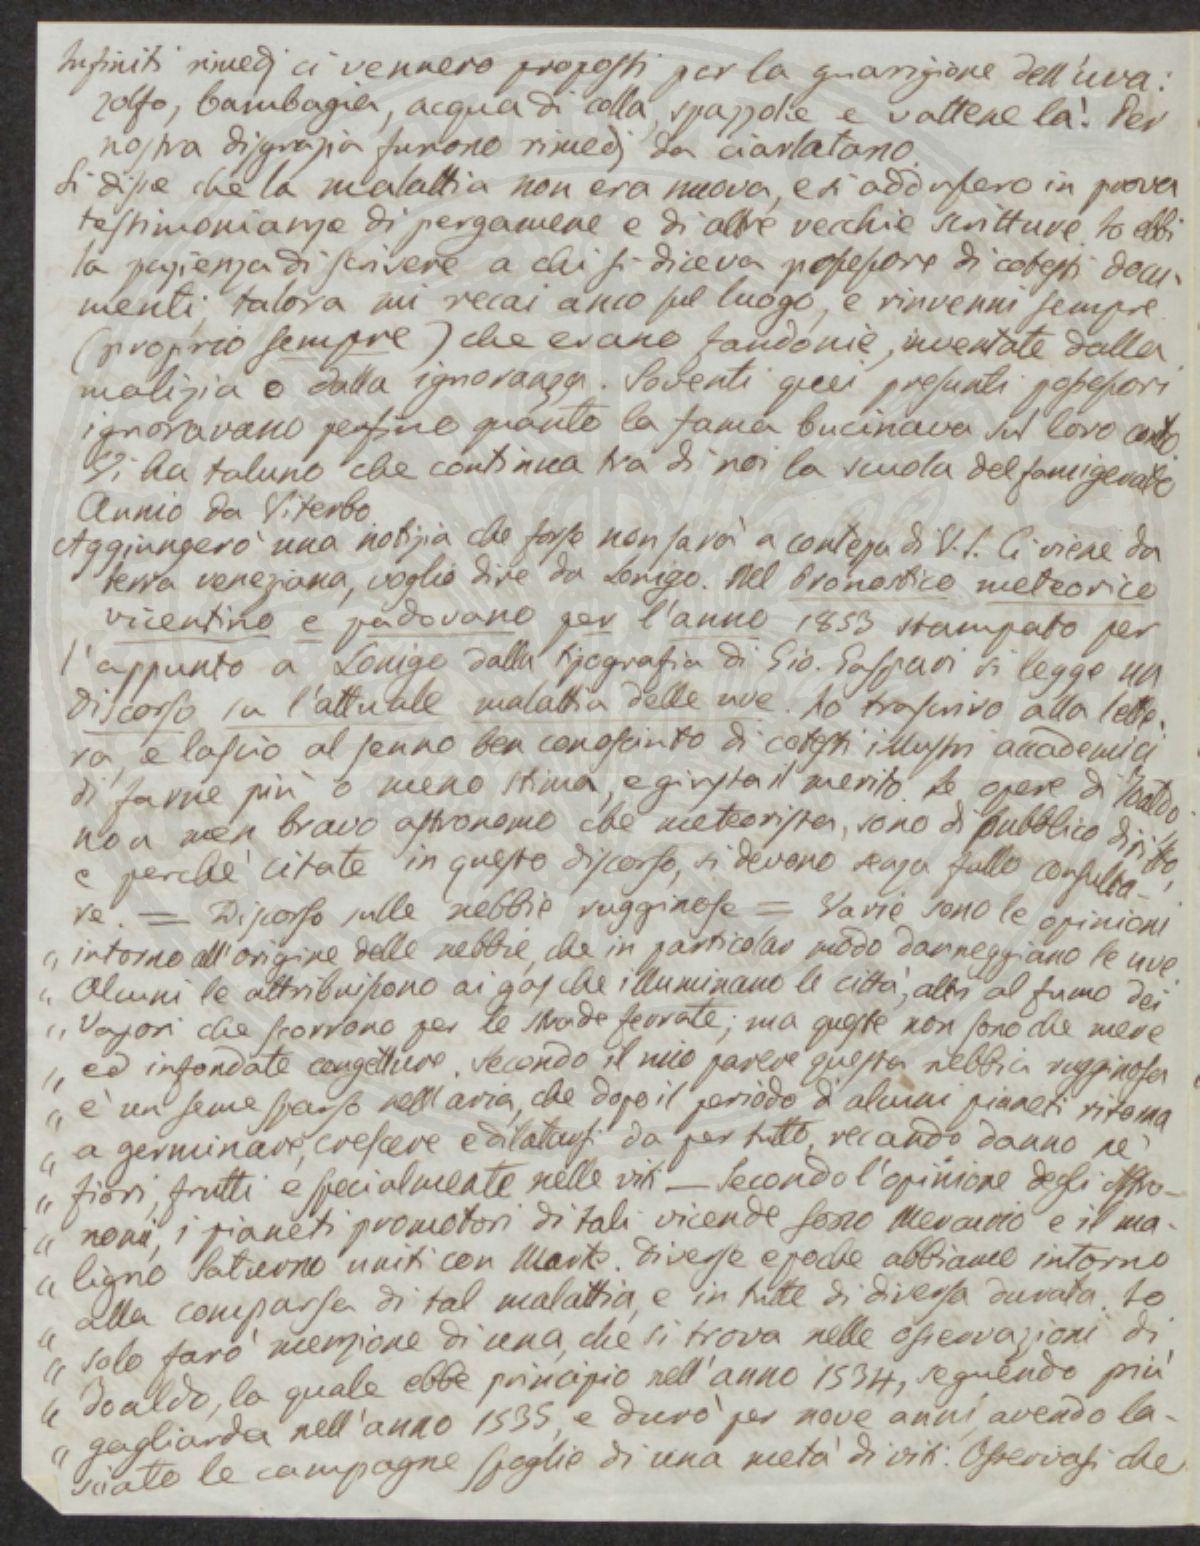 Infiniti rimedj ci vennero proposti per la guarigione dell'uva:
zolfo, bambagia, acqua di colla, spazzole e vattene là! Per
nostra disgrazia furono rimedj da ciarlatano.
Si disse che la malattia non era nuova, e si addussero in prova
testimonianze di pergamene e di altre vecchie scritture. Io ebbi
la pazienza di scrivere a chi si diceva possessore di cotesti docu-
menti, talora mi recai anco sul luogo, e rinvenni sempre
(proprio sempre) che erano fandonie, inventate dalla
malizia o dalla ignoranza. Soventi quei presunti possessori
ignoravano perfino quanto la fama bucinava sul loro conto.
Vi ha taluno che continua tra di noi la scuola del famigerato
Annio da Viterbo
Aggiungerò una notizia che forse non sarà a contezza di V.S. Ci viene da
terra veneziana, voglio dire da Lonigo. Nel Pronostico meteorico
vicentino e padovano per l'anno 1853 stampato per
l'appunto a Lonigo dalla tipografia di Gio. Gaspari si legge un
discorso su l'attuale malattia delle uve. Lo trascrivo alla lette-
ra, e lascio al senno ben conosciuto di cotesti illustri accademici
di farne più o meno stima, e giusta il merito. Le opere di Toaldo
non men bravo astronomo che meteorista, sono di pubblico diritto,
e perchè citate in questo discorso, si devono senza fallo consulta-
re. = Discorso sulle nebbie rugginose = Varie sono le opinioni
" intorno all'origine delle nebbie, che in particolar modo danneggiano le uve
" Alcuni le attribuiscono ai gas che illuminano le città, altri al fumo dei
" Vapori che scorrono per le strade ferrate; ma queste non sono che mere
" ed infondate congetture. Secondo il mio parere questa nebbia rugginosa
" è un seme sparso nell'aria, che dopo il periodo d'alcuni pianeti ritorna
" a germinare, crescere e dilatarsi da per tutto, recando danno ne'
" fiori, frutti e specialmente nelle viti — Secondo l'opinione degli Astro-
" nomi, i pianeti promotori di tali vicende sono Mercurio e il ma-
" ligno Saturno uniti con Marte. Diverse epoche abbiamo intorno
" alla comparsa di tal malattia, e in tutte di diversa durata. Io
" solo farò menzione di una, che si trova nelle osservazioni di
" Toaldo, la quale ebbe principio nell'anno 1534, seguendo più
" gagliarda nell'anno 1535, e durò per nove anni, avendo la-
" sciato le campagne spoglie di una metà di viti. Osservasi che